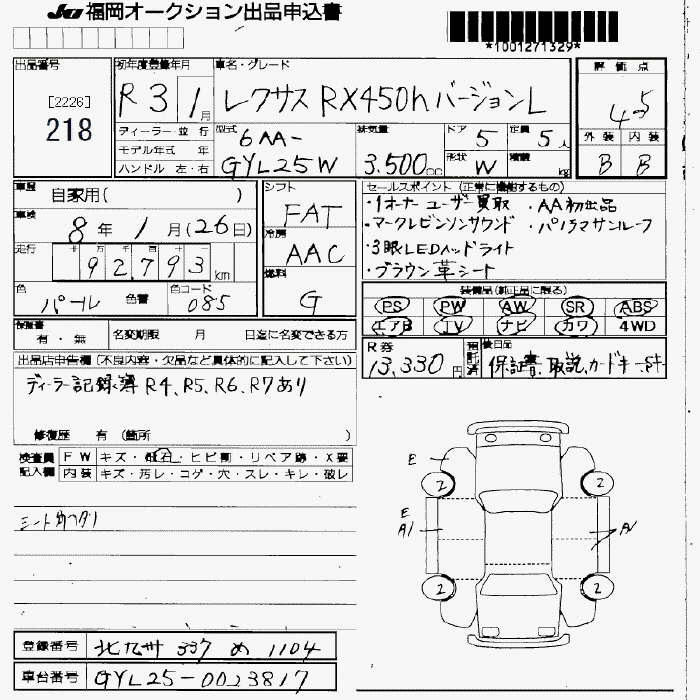 JU 福岡オークション出品申込書
*1001271329*
出品番号
[2226]
218
初年度登録年月
R3 1月
車名・グレード
レクサス RX450h バージョンL
評価点
4.5
外装 内装
B B
ディーラー 並行
モデル年式 年
ハンドル 左・右
型式
6AA-
GYL25W
排気量
3.500cc
ドア
5
形状
W
定員
5人
積載
kg
車歴
自家用( )
車検
8年 1月(26日)
走行
92,793km
色
パール
色替
色コード
085
シフト
FAT
冷房
AAC
燃料
G
セールスポイント (正常に機能するもの)
・1オーナーユーザー買取 ・AA初出品
・マークレビンソンサウンド ・パノラマサンルーフ
・3眼LEDヘッドライト
・ブラウン革シート
装備品(純正品に限る)
PS PW AW SR ABS
エアB TV ナビ カワ 4WD
保証書
有・無
名変期限 月 日迄に名変できる方
R券
13,330円
預託済
後日品
保証書、取説、カードキー、Sキー
出品店申告欄(不良内容・欠品など具体的に記入して下さい)
ディーラー記録簿 R4、R5、R6、R7あり
修復歴 有 (箇所 )
検査員
記入欄
FW キズ・飛石・ヒビ割・リペア跡・X要
内装 キズ・汚レ・コゲ・穴・スレ・キレ・破レ
E
2 2
E
A1 A1
2 2
登録番号 北九州 337 め 1104
車台番号 GYL25-0023817